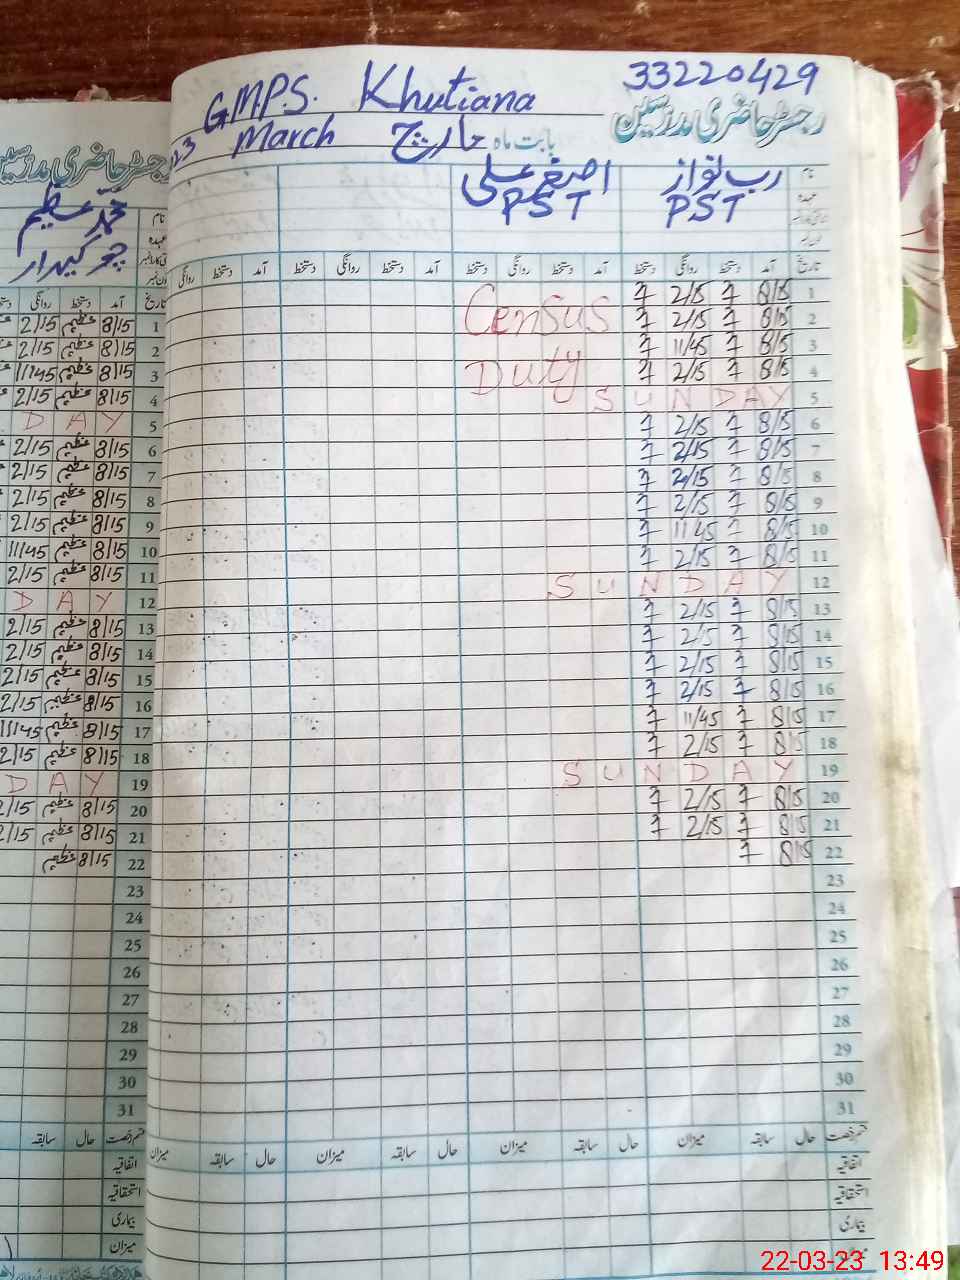 G.M.P.S. Khutiana 33220429
رجسٹر حاضری مدرسین
23 March مارچ بابت ماہ
نام رب نواز اصغر علی
عہدہ PST PST
تاریخ آمد دستخط روانگی دستخط آمد دستخط روانگی دستخط آمد دستخط روانگی دستخط آمد دستخط روانگی
1 8/15 2/15 Census
2 8/15 2/15
3 8/15 11/45
4 8/15 2/15 Duty
5 SUNDAY
6 8/15 2/15
7 8/15 2/15
8 8/15 2/15
9 8/15 2/15
10 8/15 11/45
11 8/15 2/15
12 SUNDAY
13 8/15 2/15
14 8/15 2/5
15 8/15 2/15
16 8/15 2/15
17 8/15 11/45
18 8/15 2/15
19 SUNDAY
20 8/15 2/15
21 8/15 2/15
22 8/15
23
24
25
26
27
28
29
30
31
قسم رخصت حال سابقہ میزان حال سابقہ میزان حال سابقہ میزان حال سابقہ میزان
اتفاقیہ
استحقاقیہ
بیماری
رجسٹر حاضری مدرسین
نام محمد عظیم
عہدہ چوکیدار
تاریخ آمد دستخط روانگی
1 8/15 عظیم 2/15
2 8/15 عظیم 2/15
3 8/15 عظیم 11/45
4 8/15 عظیم 2/15
5 DAY
6 8/15 عظیم 2/15
7 8/15 عظیم 2/15
8 8/15 عظیم 2/15
9 8/15 عظیم 2/15
10 8/15 عظیم 11/45
11 8/15 عظیم 2/15
12 DAY
13 8/15 عظیم 2/15
14 8/15 عظیم 2/15
15 8/15 عظیم 2/15
16 8/15 عظیم 2/15
17 8/15 عظیم 11/45
18 8/15 عظیم 2/15
19 DAY
20 8/15 عظیم 2/15
21 8/15 عظیم 2/15
22 8/15 عظیم
23
24
25
26
27
28
29
30
31
قسم رخصت حال سابقہ
اتفاقیہ
استحقاقیہ
بیماری
میزان
22-03-23 13:49